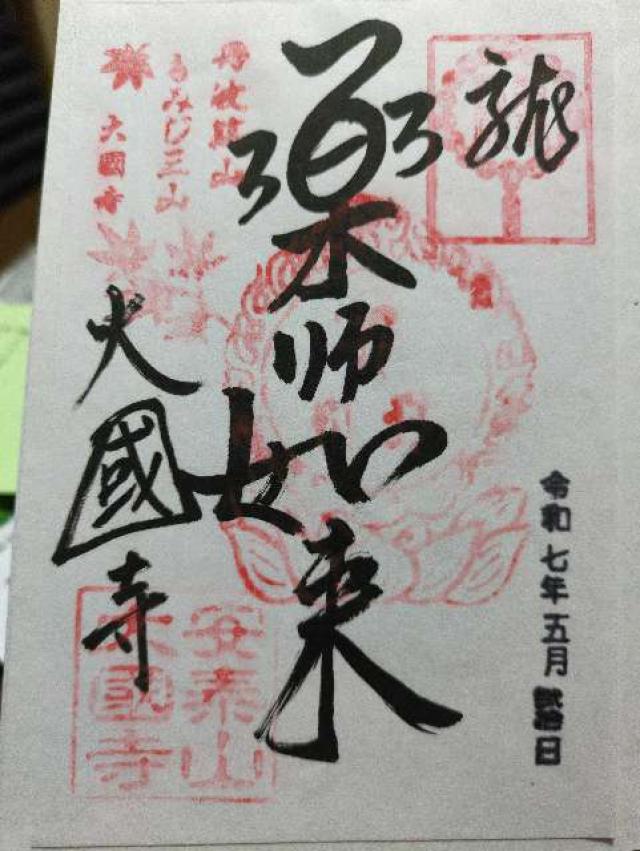 龍
令和七年五月 日
薬師如来
丹波篠山
もみじ三山
大國寺
大國寺
安泰山
大國寺